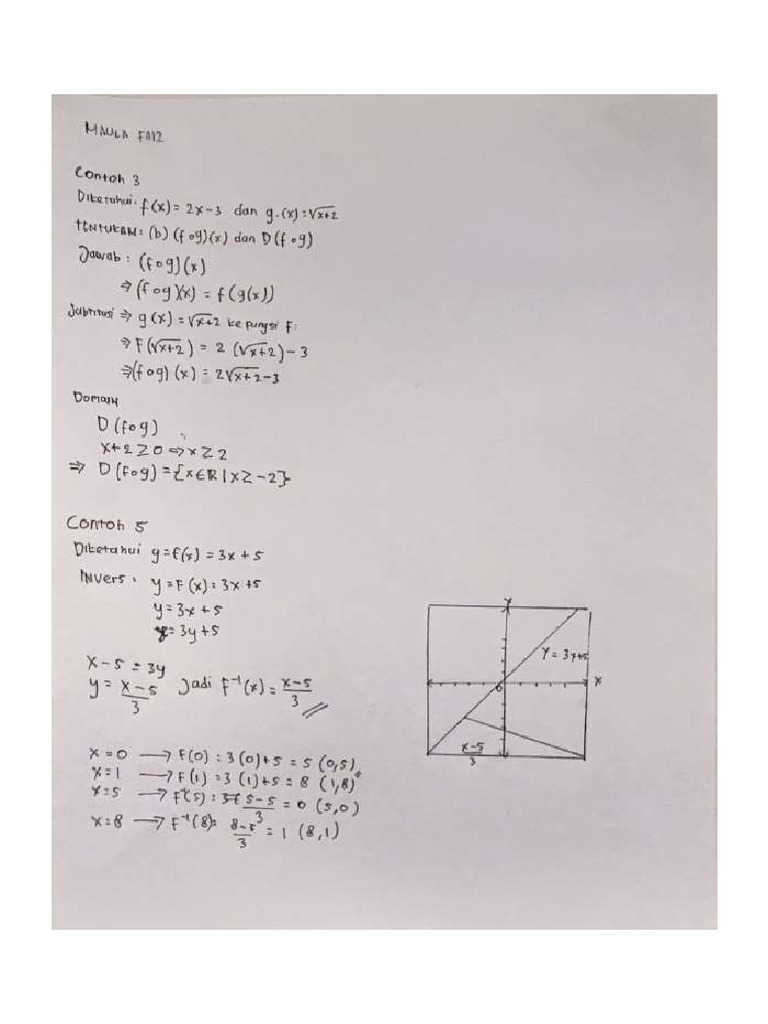 MAULA FAIZ
Contoh 3
Diketahui: f(x) = 2x-3 dan g(x) = √x+2
TENTUKAN: (b) (fog)(x) dan D(fog)
Jawab : (fog)(x)
⇒ (fog)(x) = f(g(x))
Subtitusi ⇒ g(x) = √x+2 ke pungsi F:
⇒ F(√x+2) = 2 (√x+2) - 3
⇒ (fog)(x) = 2√x+2 - 3
Domain
D (fog)
x+2 ≥ 0 ⇒ x ≥ 2
⇒ D(fog) = {x ∈ R | x ≥ -2}
Contoh 5
Diketahui y=f(x) = 3x + 5
INVers : y = F(x) : 3x+5
y = 3x + 5
x = 3y + 5
x - 5 = 3y
y = x-5/3 Jadi F⁻¹(x) = x-5/3 //
x = 0 → F(0) : 3(0)+5 = 5 (0,5)
x = 1 → F(1) : 3(1)+5 = 8 (1,8)
x = 5 → F⁻¹(5) : 5-5/3 = 0 (5,0)
x = 8 → F⁻¹(8) = 8-5/3 = 1 (8,1)
Y
Y = 3x+5
X
0
x-5/3